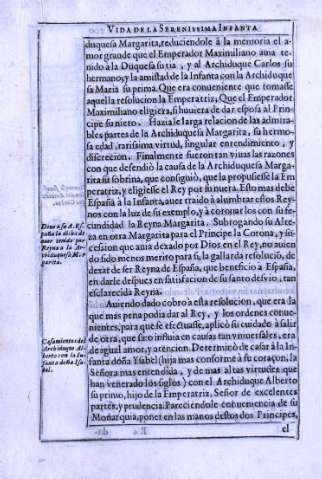 VIDA DE LA SERENISSIMA INFANTA
duquesa Margarita, reduciendole à la memoria el a-
mor grande que el Emperador Maximiliano auia te-
nido à la Duquesa su tia, y al Archiduque Carlos su
hermano, y la amistad de la Infanta con la Archiduque
sa Maria su prima. Que era conueniente que tomasse
aquella resolucion la Emperatriz, Que el Emperador
Maximiliano eligiera, si huuiera de dar esposa al Prin-
cipe su nieto. Hazia le larga relacion de las admira-
bles partes de la Archiduquesa Margarita, su hermo-
sura edad, rarissima virtud, singular entendimiento, y
discrecion. Finalmente fueron tan viuas las razones
con que defendiò la causa de la Archiduquesa Marga-
rita su sobrina, que consiguiò, que la propusiesse la Em
peratriz, y eligiesse el Rey por su nuera. Esto mas debe
España à la Infanta, auer traido à alumbrar estos Rey-
nos con la luz de su exemplo, y à coronarlos con su fe-
cundidad la Reyna Margarita. Subrogando su Alte
za en otra Margarita para el Principe la Corona, y su-
cession que auia dexado por Dios en el Rey, no auien
do sido menos merito para sì, la gallarda resoluciò, de
dexar de ser Reyna de España, que beneficio à España,
en darle despues en satisfacion de su santo desvio, tan
esclarecida Reyna.
Auiendo dado cobro à esta resolucion, que era la
que mas pena podia dar al Rey, y los ordenes conue-
nientes, para que se efectuasse, aplicò su cuidado à salir
de otra, que sino influìa en causas tan vniuersales, era
de igual amor, y atencion. Determinò de casar à la In-
fanta doña Isabel (hija mas conforme à su coraçon, la
Señora mas entendida, y de mas altas virtudes que
han venerado los siglos) con el Archiduque Alberto
su primo, hijo de la Emperatriz, Señor de excelentes
partes, y prudencia: Pareciendole conueniencia de su
Monarquia, poner en las manos destos dos Principes,
el
Diòse à su A. Es-
paña la dicha de
auer tenido por
Reyna à la Ar-
chiduquesa Mar-
garita.
Casamientos del
Archiduque Al-
berto con la In-
fanta doña Isa-
bel.